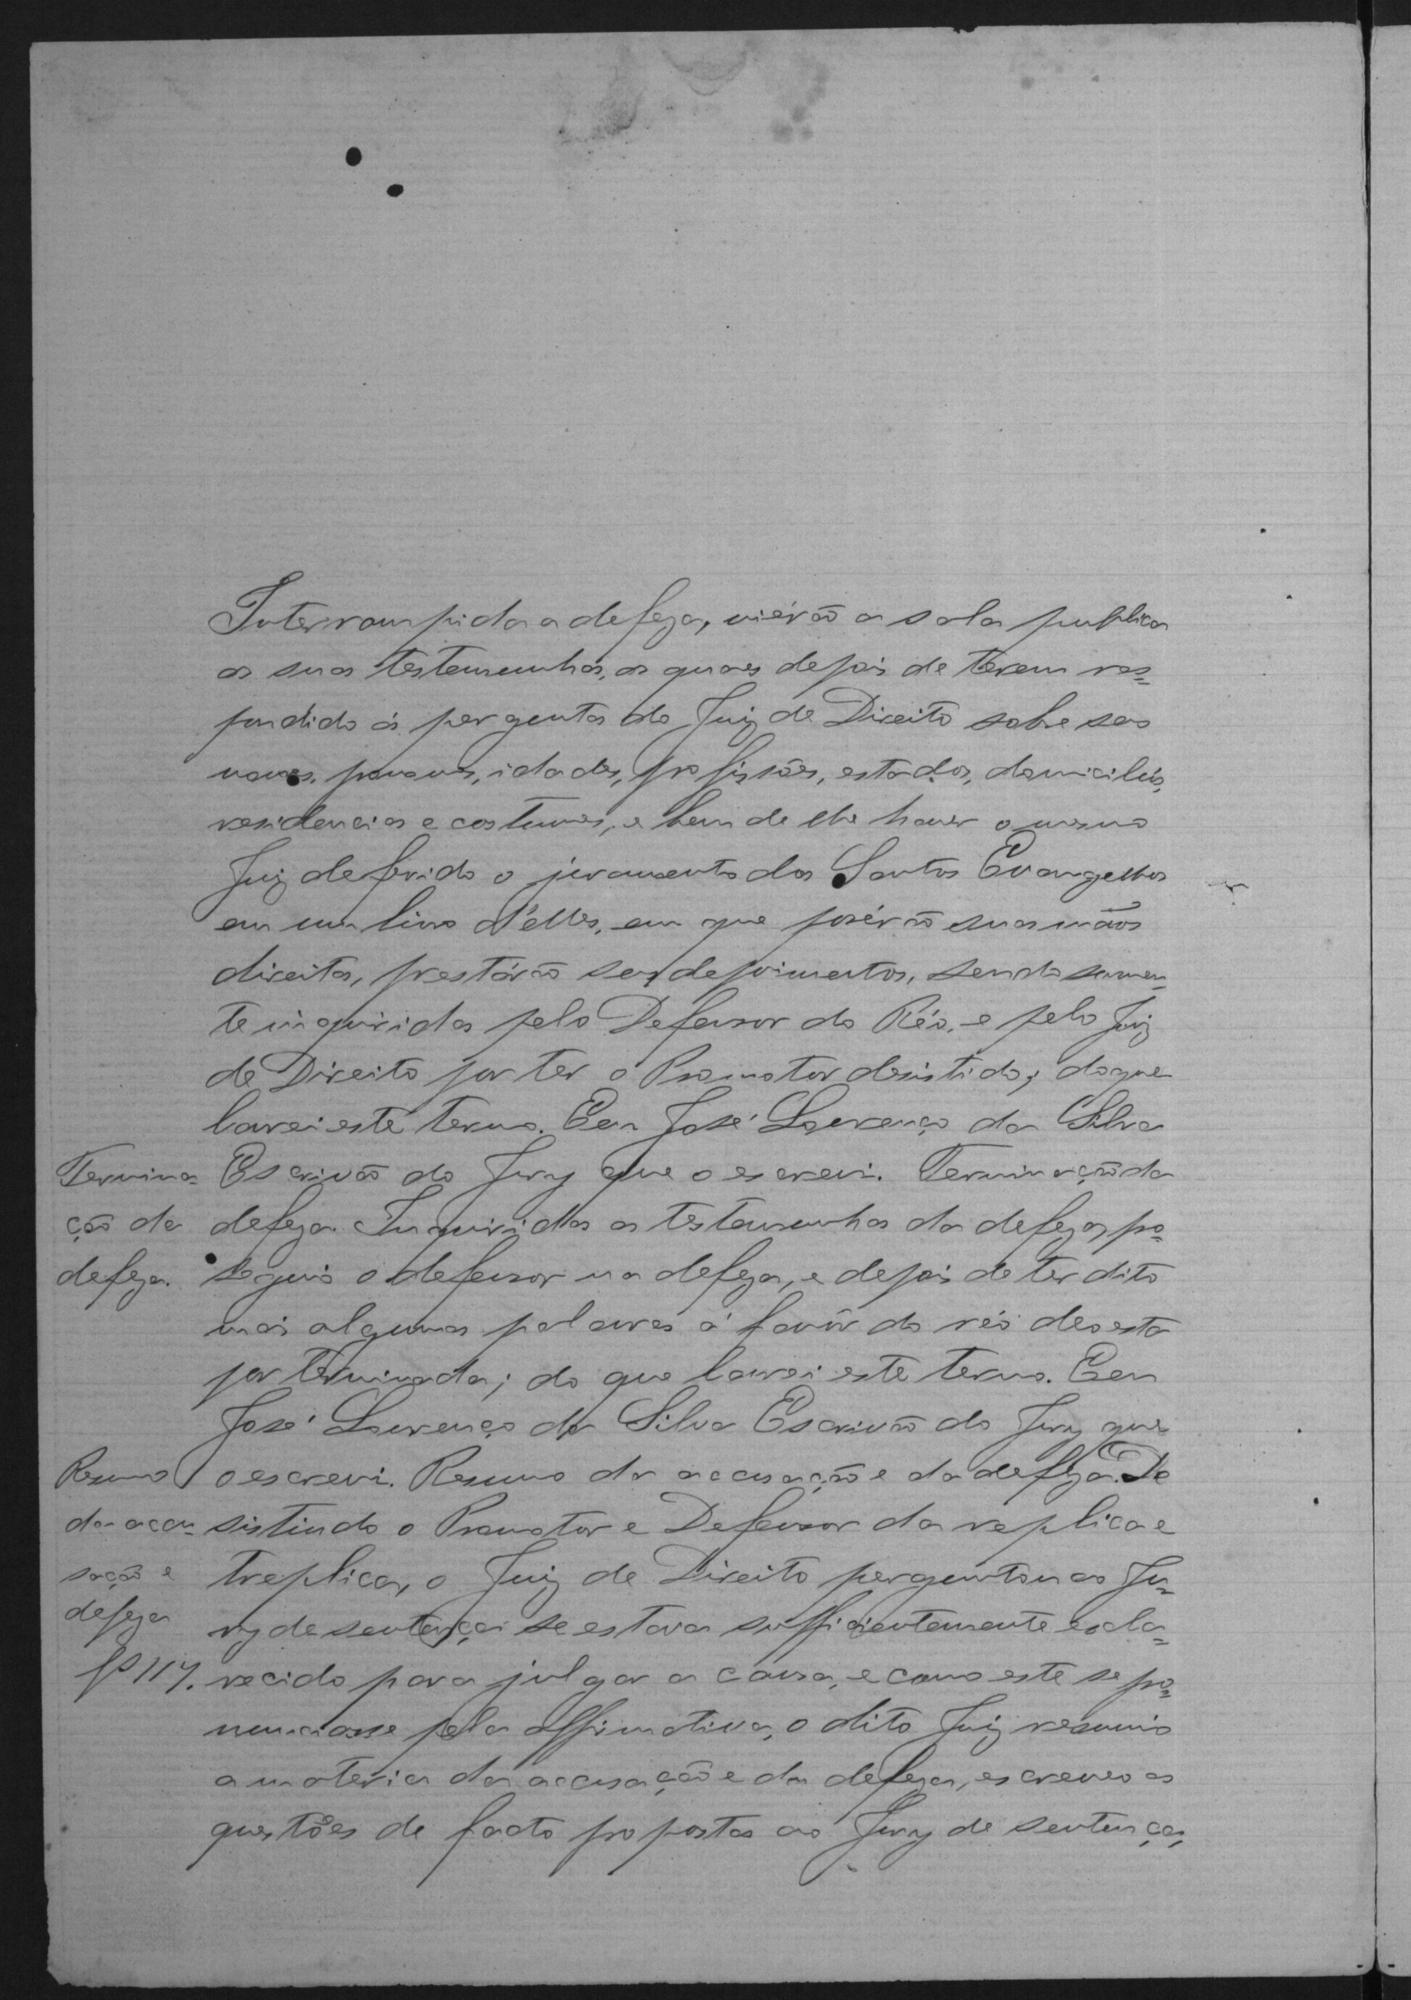 Interrompida a defeza, viérão a sala publica
as suas testemunhas, as quaes depois de terem res=
pondido ás perguntas do Juiz de Direito sobre seos
nomes, pronomes, idades, profissões, estados, domicilios,
residencias e costumes, e bem de lhe haver o mesmo
Juiz deferido o juramento dos Santos Evangelhos
em um livro d'elles, em que posérão suas mãos
direitas, prestárão seos depoimentos, sendo somen=
te inquiridas pelo Defensor do Réo, e pelo Juiz
de Direito por ter o Promotor desistido; do que
lavrei este termo. Eu José Lourenço da Silva
Termina=
ção da
defeza.
Escrivão do Jury que o escrevi. Terminação da
defeza. Inquiridas as testemunhas da defeza, pro=
seguio o defensor na defeza, e depois de ter dito
mais algumas palavras á favôr do réo deo esta
por terminada; do que lavrei este termo. Eu
José Lourenço da Silva Escrivão do Jury que
Resumo
da accu=
sação e
defeza
fs 117.
o escrevi. Resumo da accusação e da defeza. De
sistindo o Promotor e Defensor da replica e
treplica, o Juiz de Direito perguntou ao Ju=
ry de sentença se estava sufficientemente escla=
recido para julgar a causa, e como este se pro=
nunciasse pela affirmativa, o dito Juiz resumio
a materia da accusação e da defeza, escreveo as
questões de facto propostas ao Jury de sentença,